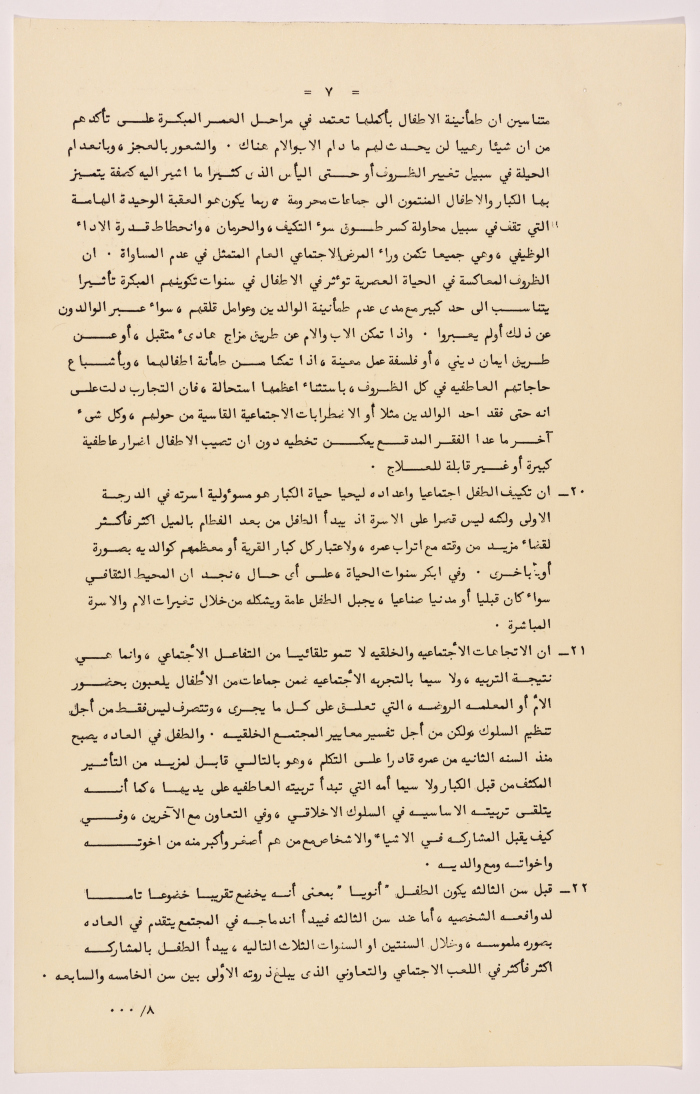 = ٧ =
متناسين ان طمأنينة الاطفال بأكملها تعتمد في مراحل العمر المبكرة علــى تأكدهم
من ان شيئا رهيبا لن يحدث لهم ما دام الاب والام هناك . والشعور بالعجز ، وبانعدام
الحيلة في سبيل تغيير الظروف أو حــتى اليأس الذى كثيرا ما اشير اليه كصفة يتميز
بها الكبار والاطفال المنتمون الى جماعات محرومة ، ربما يكون هو العقبة الوحيدة الهامة
التي تقف في سبيل محاولة كسر طــوق سوء التكيف ، والحرمان ، وانحطاط قدرة الاداء
الوظيفي ، وهي جميعا تكمن وراء المرض الاجتماعي العام المتمثل في عدم المساواة . ان
الظروف المعاكسة في الحياة العصرية توءثر في الاطفال في سنوات تكوينهم المبكرة تأثيرا
يتناســب الى حد كبير مع مدى عدم طمأنينة الوالدين وعوامل قلقهم ، سواء عــبر الوالدون
عن ذلك أولم يعــبروا . واذا تمكن الاب والام عن طريق مزاج هادىء متقبل ، أو عــن
طــريق ايمان ديني ، أو فلسفة عمل معينة ، اذا تمكنا مــن طمأنة اطفالهما ، وبأشباع
حاجاتهم العاطفيه في كل الظــروف ، باستثناء اعظمها استحالة ، فان التجارب دلت علــى
انه حتى فقد احد الوالدين مثلا أو الاضطرابات الاجتماعية القاسية من حولهم ، وكل شىء
آخــر ما عدا الفقر المدقــع يمكــن تخطيه دون ان تصيب الاطفال اضرار عاطفية
كبيرة أو غــير قابلة للعــلاج .
٢٠ــ ان تكييف الطفل اجتماعيا واعداده ليحيا حياة الكبار هو مسوءولية اسرته في الدرجة
الاولى ولكنه ليس قصرا على الاسرة اذ يبدأ الطفل من بعد الفطام بالميل اكثر فأكــثر
لقضاء مزيــد من وقته مع اتراب عمره ، ولاعتبار كل كبار القرية أو معظمهم كوالديه بصورة
أو بأخــرى . وفي ابكر سنوات الحياة ، علــى أى حــال ، نجــد ان المحيط الثقافــي
سواء كان قبليا أو مدنيا صناعيا ، يجبل الطفل عامة ويشكله من خلال تغيرات الام والاسرة
المباشرة .
٢١ــ ان الاتجاهات الأجتماعيه والخلقيه لا تنمو تلقائيــا من التفاعــل الأجتماعي ، وانما هــي
نتيجــة التربيه ، ولا سيما بالتجربه الأجتماعيه ضمن جماعات من الأطفال يلعبون بحضــور
الأم أو المعلمــه الروضــه ، التي تعلــق على كــل ما يجــرى ، وتتصرف ليس فقط من أجل
تنظيم السلوك ولكن من أجل تفسير معايير المجتمــع الخلقيــه . والطفل في العاده يصبح
منذ السنه الثانيه من عمره قادرا علــى التكلم ، وهو بالتالــي قابل لمزيد من التأثــير
المكثف من قبل الكبار ولا سيما أمه التي تبدأ تربيته العاطفيه على يديهــا ، كما أنــــه
يتلقــى تربيتــه الاساسيــه في السلوك الاخلاقــي ، وفي التعاون مع الآخرين ، وفــي
كيف يقبل المشاركــه فــي الاشياء والاشخاص مع من هم أصغر وأكبر منه من اخوتــــه
واخواتــه ومع والديــه .
٢٢ــ قبل سن الثالثه يكون الطفــل "أنويــا" بمعنى أنــه يخضع تقريبــا خضوعــا تامــــا
لدوافعــه الشخصيه ، أما عنــد سن الثالثه فيبدأ اندماجــه في المجتمع يتقدم في العاده
بصوره ملموســه ، وخلال السنتين او السنوات الثلاث التاليه ، يبدأ الطفــل بالمشاركــــه
اكثر فأكثر في اللعب الاجتماعي والتعاوني الذى يبلغ ذروته الأولى بين سن الخامسه والسابعه .
٨/ ٠٠٠